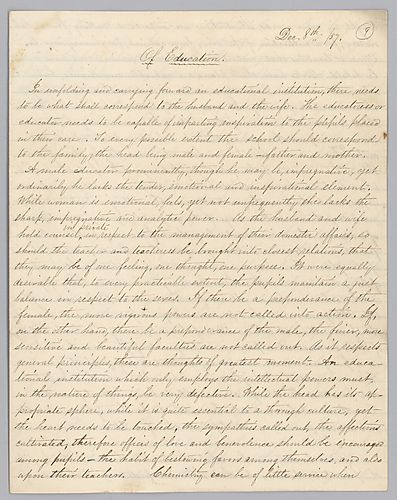 Dec. 8th /57.
9
Of Education.
In unfolding and carrying forward an educational institution, there needs
to be what shall correspond to the husband and the wife. The educatress or
educator needs to be capable of imparting inspiration to the pupils placed
in their care. To every possible extent the school should correspond
to the family, the head being male and female – father and mother.
A male educator prominently, though he may be impregnative, yet
ordinarily he lacks the tender, emotional and inspirational element.
While woman is emotional, feels, yet not unfrequently she lacks the
sharp, impregnative and analytic power. As the husband and wife
in private
hold counsel, in respect to the management of their domestic affairs, so
should the teacher and teacheress be brought into closest relations, that
they may be of one feeling, one thought, one purpose. It were equally
desirable that, to every practicable extent, the pupils maintain a just
balance in respect to the sexes. If there be a preponderance of the
female, the more vigorous powers are not called into action. If,
on the other hand, there be a preponderance of the male, the finer, more
sensitive and beautiful faculties are not called out. As it respects
general principles, these are thoughts of greatest moment. An educa-
tional institution which only employs the intellectual powers must,
in the nature of things, be very defective. While the head has its ap-
propriate sphere, while it is quite essential to a thorough culture, yet
the heart needs to be touched, the sympathies called out, the affections
cultivated, therefore offices of love and benevolence should be encouraged
among pupils – the habit of bestowing favors among themselves, and also
upon their teachers. Chemistry can be of little service when